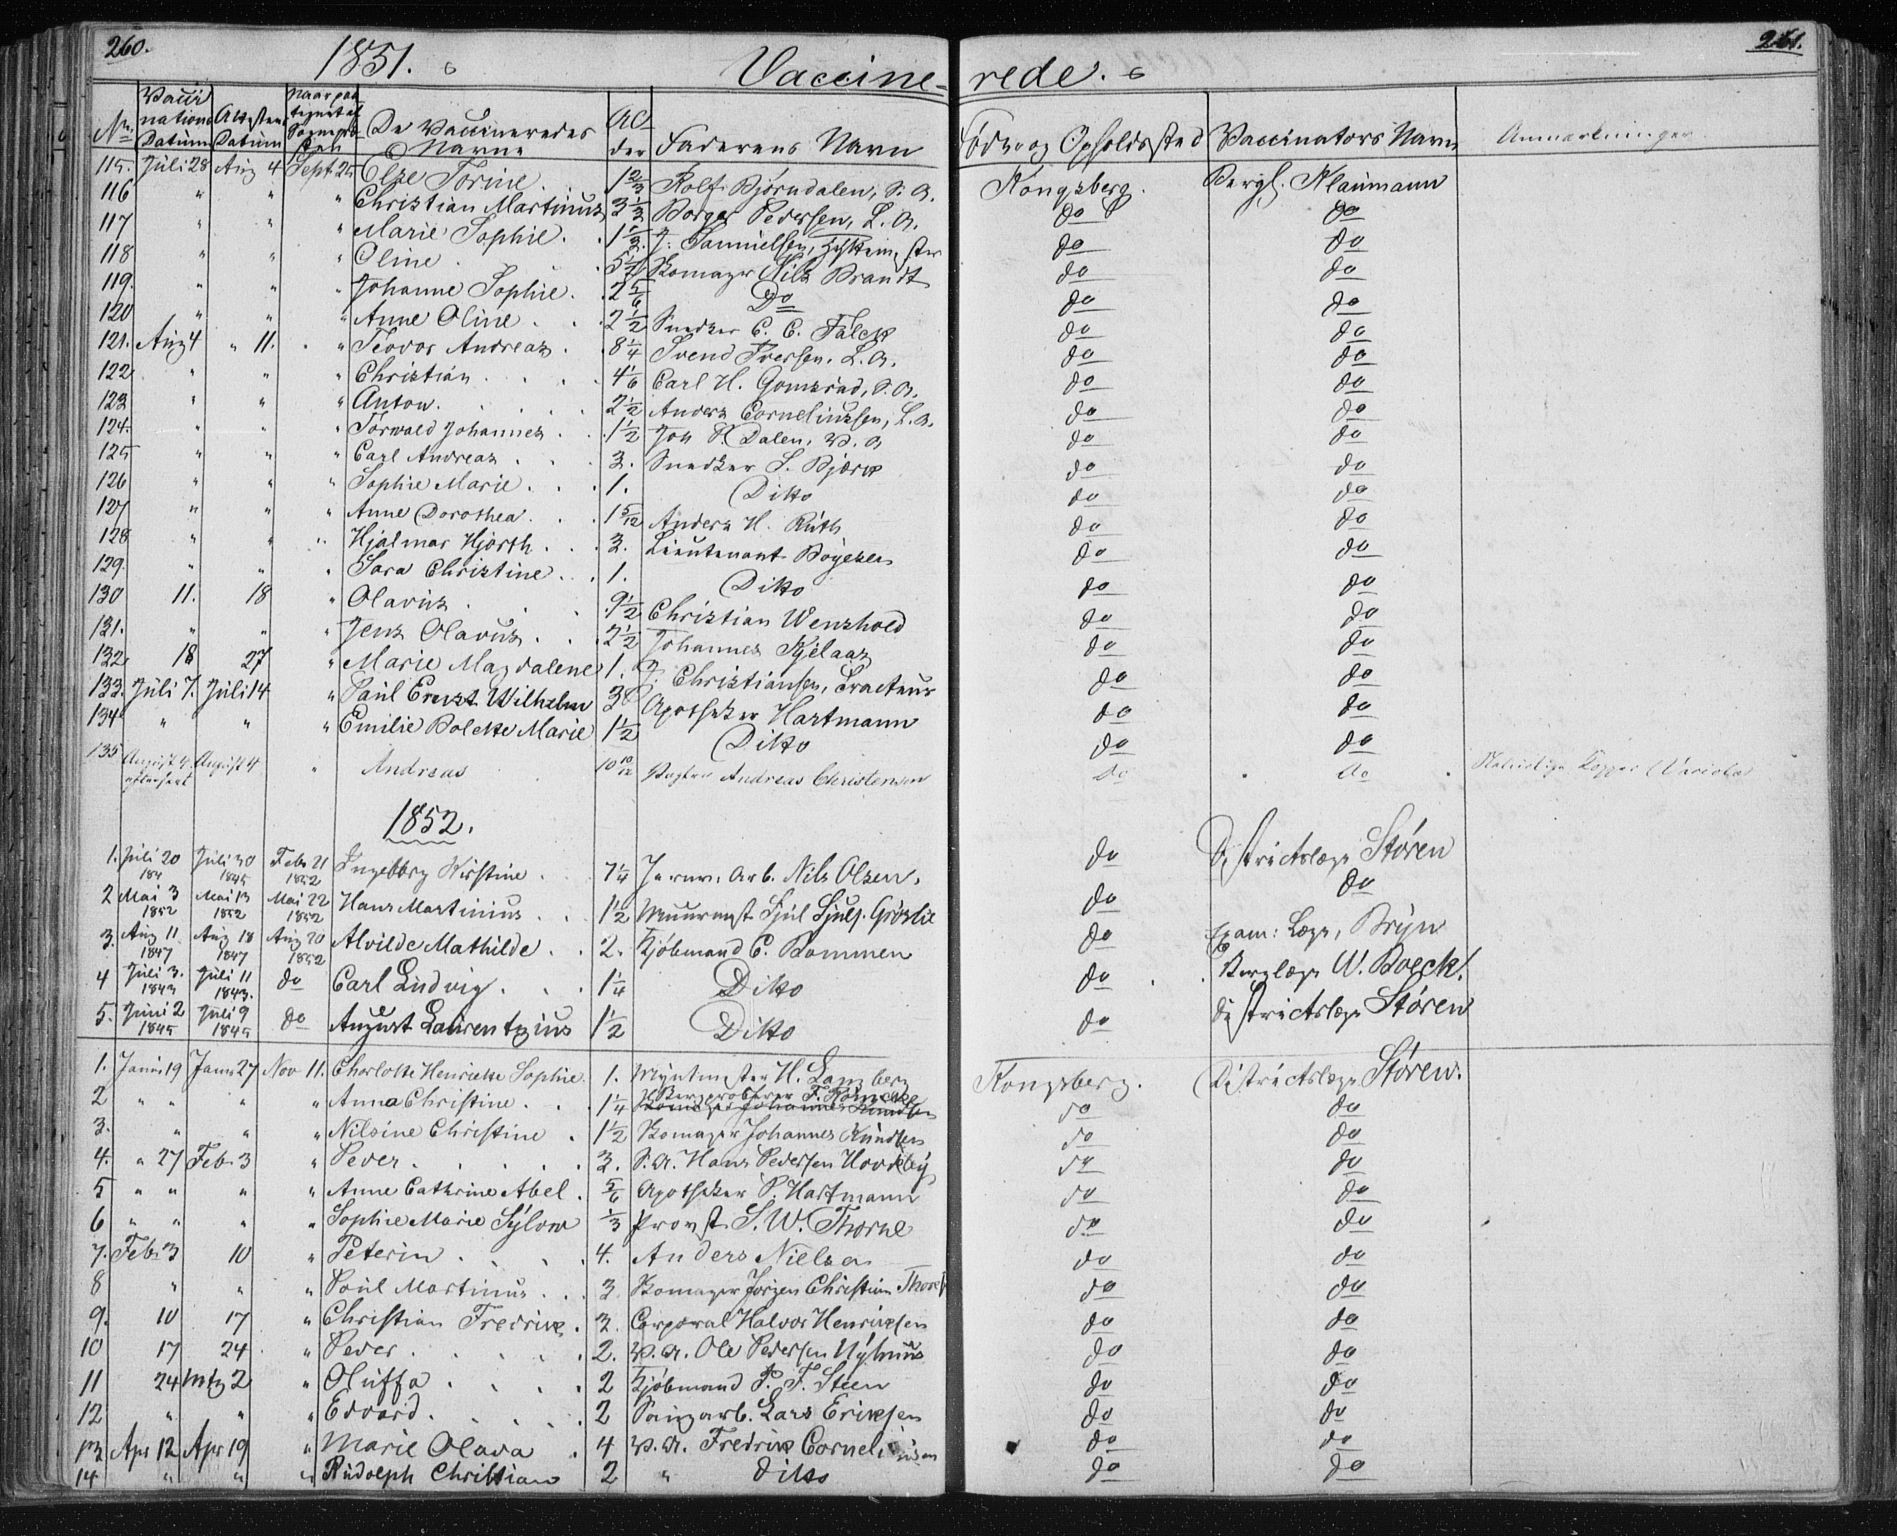 260. 1851. Vaccinerede. 261.
No. Vaccinations Datum Attestens Datum De Vaccineredes Navne Alder Faderens Navn Føde og Opholdssted Vaccinators Navn Anmærkninger
115. Juli 28 Aug 4 Sept 25 Else Torine. 1 2/3 Rolf Bjørndalen, S. A. Kongsberg. Bergl. Naumann
116 " " " Christian Martinus 3 1/3 Borger Pedersen, L. A. do do
117 " " " Marie Sophie. 1 1/3 J. Samuelsen, do do
118 " " " Oline. Komager Nils Brandt do do
119. " " " Johanne Sophie. 2 5/6 Do do do
120 " " " Anne Oline 2 1/2 Snedker C. C. Falck do do
121. Aug 4 " 11. " Teodor Andreas 8 1/4 Svend Iversen. L. A. do do
122 " " " Christian 4 1/6 Carl H. Gomsrud, S. A. do do
123 " " " Anton. 2 1/2 Anders Corneliussen, L. A. do do
124. " " " Torwald Johannes 1 1/2 Joh P. Dalen. V. A do do
125 " " " Carl Andreas 3. Snedker L. Bjerk do do
126 " " " Sophie Marie 1. Ditto do do
127 " " " Anne Dorothea. 1 5/12 Anders H. Ruth do do
128 " " " Hjalmar Hjorth 3. Lieutenant Böyesen do do
129. " " " Sara Christine 1. Ditto do do
130 11. 18 " Olavus. 9 1/2 Christian Wenshold do do
131. " " " Jens Olavus 2 1/2 Johannes Kjelaas do do
132 18 27 " Marie Magdalene 1. J. Christiansen, Tracteur do do
133. Juli 7. Juli 14 " Paul Ernst Wilhelm 3 Apotheker Hartmann do do
134 " " " Emilie Bolette Marie 1 1/2 Ditto do do
135 August 4 August 4 " Andreas 10 10/12 Andreas Christensen do " do Naturlige Kopper (Variola
1852.
1. Juli 20 184 Juli 30 1845 Feb. 21 1852 Ingeborg Kirstine 7 1/4 Jernv. Arb. Nils Olsen. do Districtslæge Støren
2 Mai 3 1852 Mai 13 1852 Mai 22 1852 Hans Martinius 1 1/2 Muurmest. Hjul Hjuls. Grøslie do do
3. Aug 11 1847 Aug 18 1847 Aug 20 1852 Alvilde Mathilde 2. Kjöbmand C. Bommen do Exam: Læge, Bryn
4 Juli 3. 1843 Juli 11 1843. do Carl Ludvig 1 1/4 Ditto do Berglæge W. Boeck.
5. Juni 2 1845 Juli 9 1845 do August Laurentzius 1 1/2 Ditto do Districtslæge Støren
1. Janu. 19 Janu 27 Nov 11. Charlotte Henriette Sophie. 1. Myntmester H. Langberg Kongsberg. Districtslæge Støren.
2 " " " Anna Christine 1 1/4 Bergprobérer F. Komager Johannes Knudsen do do
3. " " " Nilsine Christine 1 1/2 Komager Johannes Knudsen do do
4. " 27 Feb. 3 " Peder 3. S. A. Hans Pedersen Hovdeby do do
5 " " " " Anne Cathrine Abel 5/6 Apotheker P. Hartmann do do
6 " " " " Sophie Marie Sylow 1/3 Provst S. W. Thorne do do
7. Feb. 3 10 " Peterin 4. Anders Nielsen do do
8 " " " Poul Martinus 3 Komager Jörgen Christian do do
9. 10 17 " Christian Fredrik 3. Corporal Halvor Henriksen do do
10 17 24 " Peder 2. V. A. Ole Pedersen Nyhuus do do
11 24 Mts 2 " Oluffa 2 Kjöbmand P. F. Steen do do
12 " " " Edvard 2 Saugarb. Lars Eriksen do do
13 Apr 12 Apr 19 " Marie Olava 4 V. A. Fredrik Corneliussen do do
14 " " " Rudolph Christian 2 " ditto do do